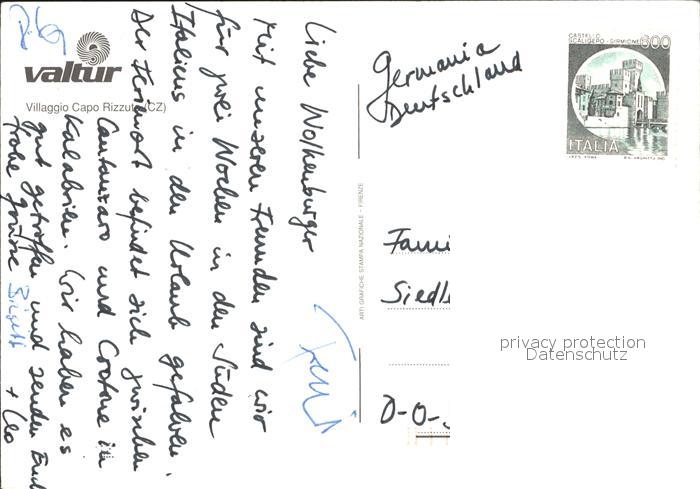 valtur
Villaggio Capo Rizzuto (CZ)
Liebe Wolkenburger
Mit unseren Freunden sind wir
für zwei Wochen in den Süden
Italiens in den Urlaub gefahren.
Der Ferienort befindet sich zwischen
Cantanzaro und Crotone in
Kalabrien. Wir haben es
gut getroffen und senden Euch
frohe Grüße Birgitt + Leo
ARTI GRAFICHE STAMPA NAZIONALE - FIRENZE
Germania
Deutschland
CASTELLO
SCALIGERO - SIRMIONE 600
ITALIA
Fami
Siedl
D-O-
privacy protection
Datenschutz